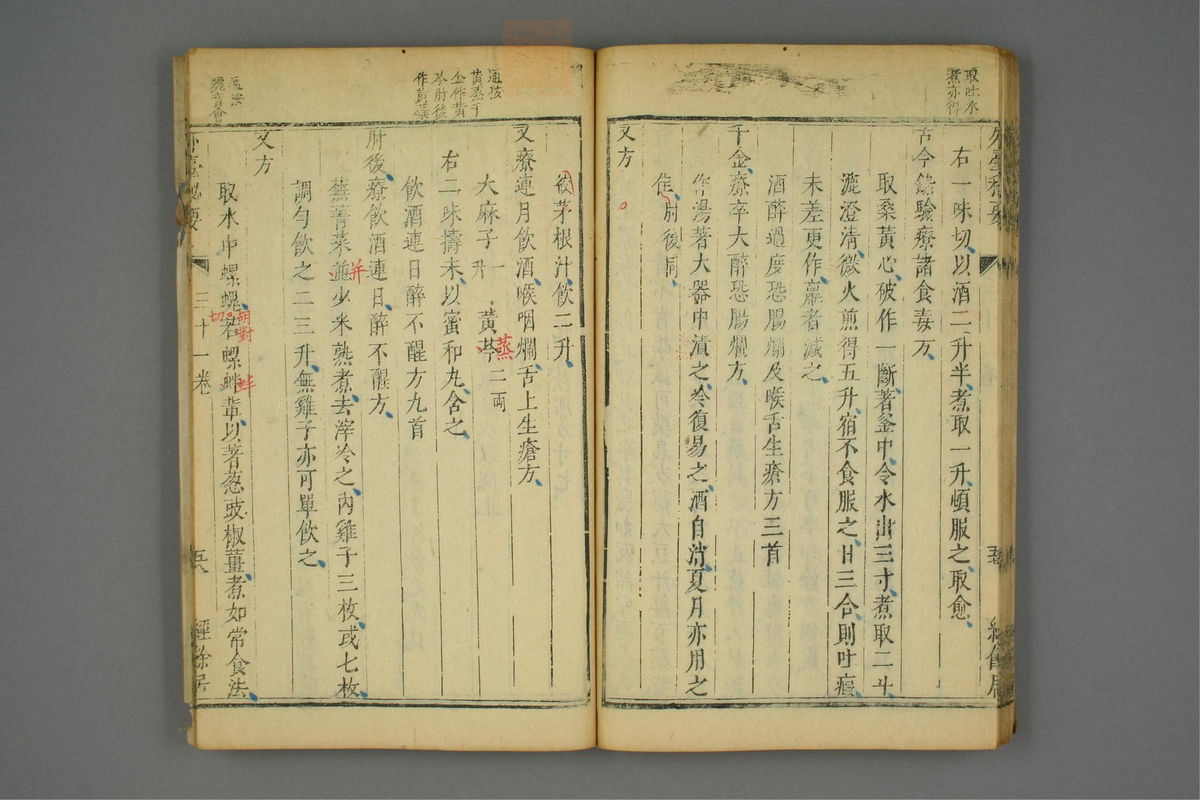 取吐水
煮亦得
右一味切以酒二升半煮取一升頓服之取愈
古今錄驗療諸食毒方
取桑黃心破作一斷著釜中令水出三寸煮取二斗
漉澄清微火煎得五升宿不食服之日三合則吐
未差更作羸者減之
酒醉過度恐腸爛及喉舌生瘡方三首
千金療卒大醉恐腸爛方
作湯著大器中漬之冷復易之酒自消夏月亦用之
佳肘後同
又方
通按
黃蒸千
金作黃
芩肘後
作黃蘗
後茅根汁飲二升
又療連月飲酒喉咽爛舌上生瘡方
大麻子一升 黃芩二兩
蒸
右二味擣末以蜜和丸含之
飲酒連日醉不醒方九首
肘後療飲酒連日醉不醒方
蕪菁菜并少米熟煮去滓冷之內雞子三枚或七枚
并
調勻飲之二三升無雞子亦可單飲之
又方
取水中螺蜆若螺蚌輩以著葱豉椒薑煮如常食法
胡對
切
蚌
外臺秘要
三十一卷
經餘居